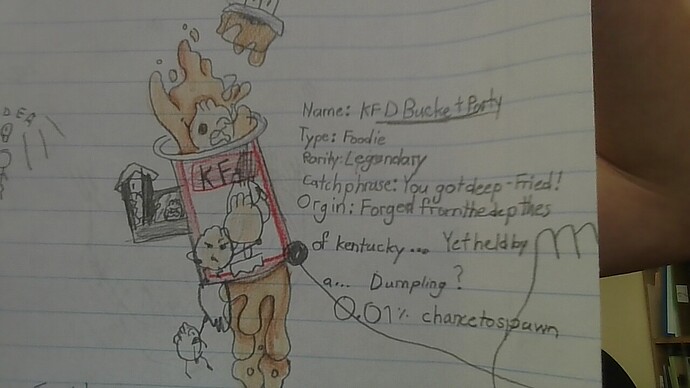 DEA
Name: KFD Bucket Party
Type: Foodie
Rarity: Legendary
Catchphrase: You got deep-fried!
KFD
Orgin: Forged from the depthes
of kentucky... Yet held by
a... Dumpling?
0.01% chance to spawn